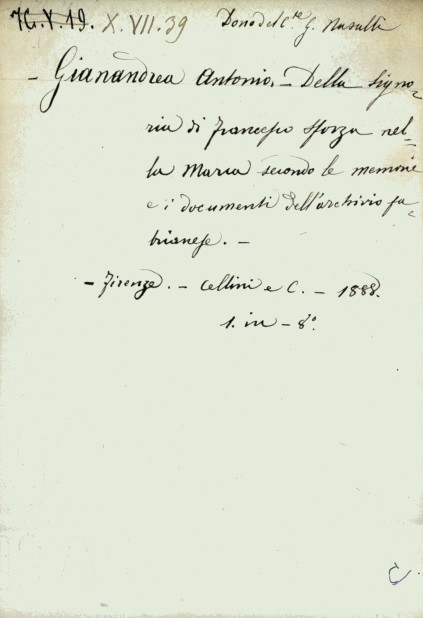 76.V.19. X.VII.39 Dono del C.te G. Nasalli
- Gianandrea Antonio. - Della Signo-
ria di Francesco Sforza nel-
la Marca secondo le memorie
e i documenti dell'archivio fa-
brianese. -
- Firenze. - Cellini e C. - 1888.
1. in - 8°.
C